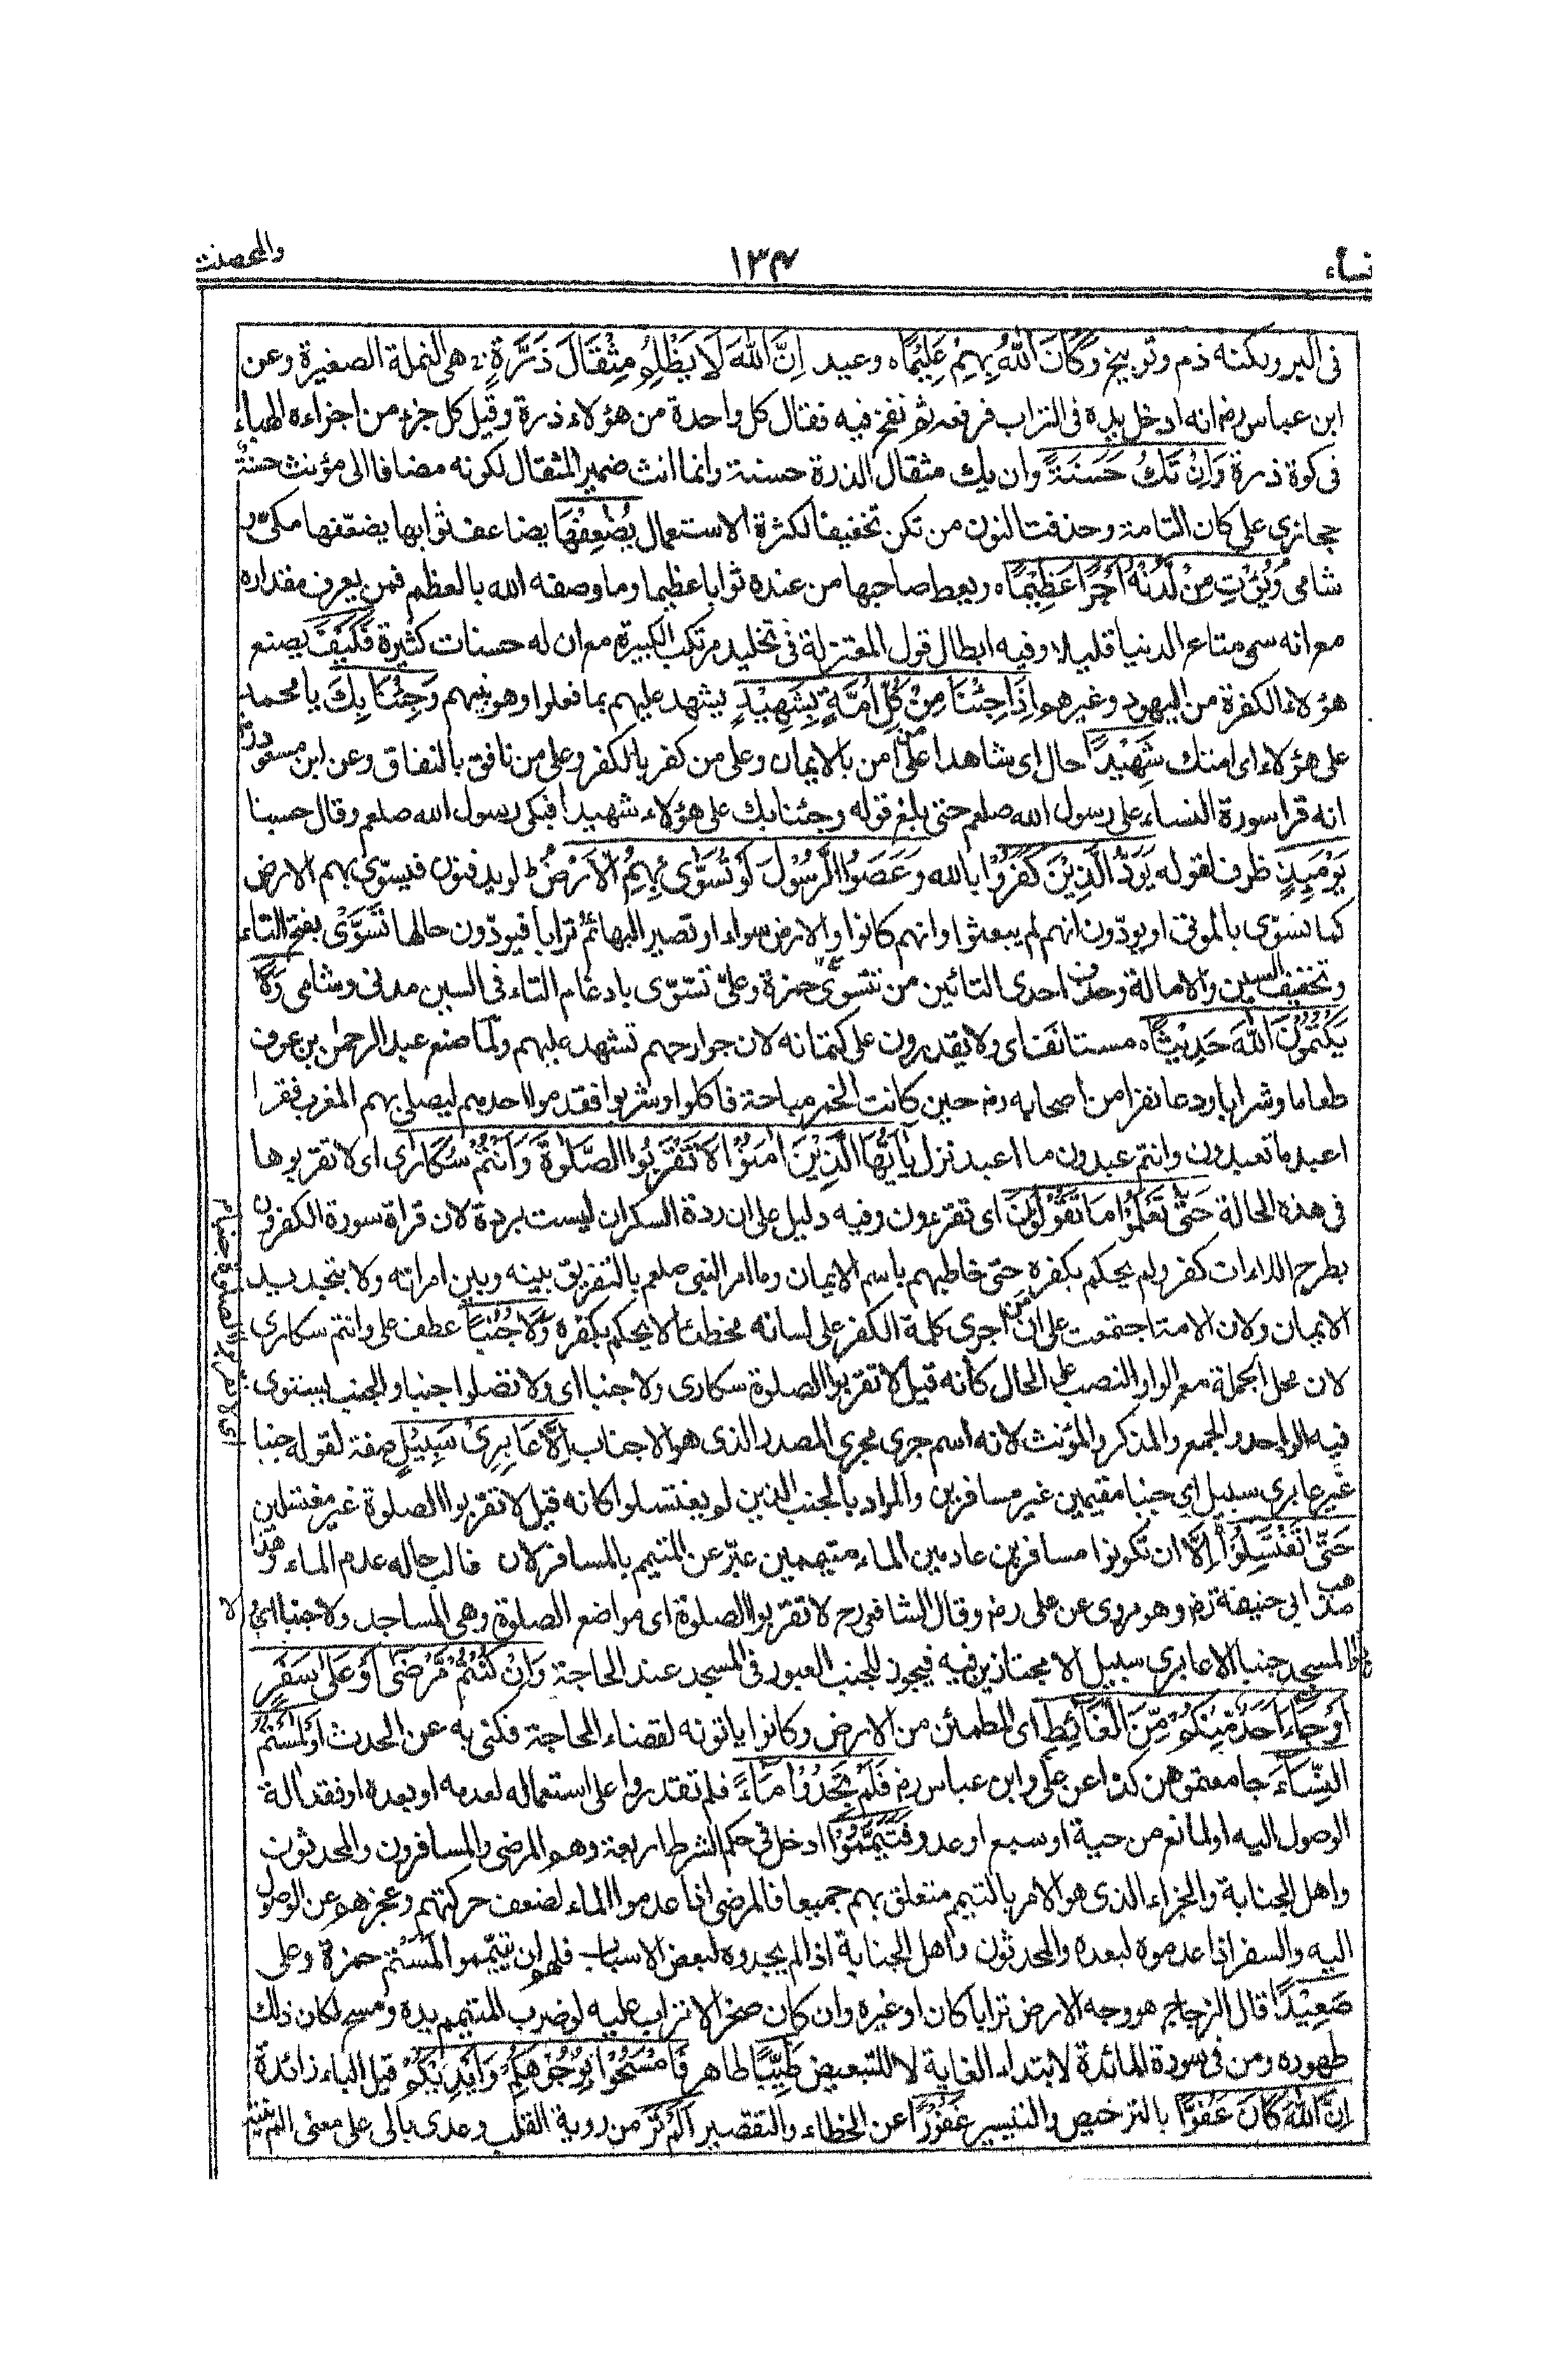 نساء
١٣٤
والمحصنت
فى البر ولكنه ذم وتوبيخ وَكَانَ اللّٰهُ بِهِمْ عَلِيْمًا ه وعيد اِنَّ اللّٰهَ لَا يَظْلِمُ مِثْقَالَ ذَرَّةٍ ج هى النملة الصغيرة وعن
ابن عباس رضـ انه ادخل يده فى التراب فرفعه ثم نفخ فيه فقال كل واحدة من هؤلاء ذرة وقيل كل جزء من اجزاءه الهباء
فى كوة ذرة وَاِنْ تَكُ حَسَنَةً وان يك مثقال الذرة حسنة وانما انث ضمير المثقال لكونه مضافا الى مؤنث حسنةٌ
حجازى على كان التامة وحذفت النون من تكن تخفيفا لكثرة الاستعمال يُضٰعِفْهَا يضاعف ثوابها يضعّفها مكىّ و
شامى وَيُؤْتِ مِنْ لَّدُنْهُ اَجْرًا عَظِيْمًا ه ويعط صاحبها من عنده ثوابا عظيما وما وصفه الله بالعظم فمن يعرف مقداره
مع انه سمى متاع الدنيا قليلا وفيه ابطال قول المعتزلة فى تخليد مرتكب الكبيرة مع ان له حسنات كثيرة فَكَيْفَ يصنع
هؤلاء الكفرة من اليهود وغيرهم اِذَا جِئْنَا مِنْ كُلِّ اُمَّةٍ بِشَهِيْدٍ يشهد عليهم بما فعلوا وهو نبيهم وَجِئْنَا بِكَ يا محمد
على هؤلاء اى امتك شَهِيْدًا حال اى شاهدا على من امن بالايمان وعلى من كفر بالكفر وعلى من نافق بالنفاق وعن ابن مسعود رضـ
انه قرا سورة النساء على رسول الله صلعم حتى بلغ قوله وجئنا بك على هؤلاء شهيدا فبكى رسول الله صلعم وقال حسبنا
يَوْمَئِذٍ ظرف لقوله يَوَدُّ الَّذِيْنَ كَفَرُوْا بالله وَعَصَوُا الرَّسُوْلَ لَوْ تُسَوّٰى بِهِمُ الْاَرْضُ ط لو يدفنون فتسوّى بهم الارض
كما تسوّى بالموتى او يودّون انهم لم يبعثوا وانهم كانوا والارض سواء او تصير البهائم ترابا فيودّون حالها تَسَوّٰى بفتح التاء
وتخفيف السين والامالة وحذف احدى التائين من تتسوّى حمزة وعلىّ تسّوّى بادغام التاء فى السين مدنى وشامى وَلَا
يَكْتُمُوْنَ اللّٰهَ حَدِيْثًا ه مستانف اى ولا يقدرون على كتمانه لان جوارحهم تشهد عليهم ولما صنع عبد الرحمٰن بن عوف
طعاما وشرابا ودعا نفرا من اصحابه رضـ حين كانت الخمر مباحة فاكلوا وشربوا فقدموا احدهم ليصلى بهم المغرب فقرا
اعبد ما تعبدون وانتم عبدون ما اعبد نزل يٰاَيُّهَا الَّذِيْنَ اٰمَنُوْا لَا تَقْرَبُوا الصَّلٰوةَ وَاَنْتُمْ سُكَارٰى اى لا تقربوها
فى هذه الحالة حَتّٰى تَعْلَمُوْا مَا تَقُوْلُوْنَ اى تقرءون وفيه دليل على ان ردة السكران ليست بردة لان قراة سورة الكفرون
بطرح اللاءات كفر ولم يحكم بكفره حتى خاطبهم باسم الايمان وما امر النبى صلعم بالتفريق بينه وبين امراته ولا بتجديد
الايمان ولان الامة اجتمعت على ان من اجرى كلمة الكفر على لسانه مخطئا لا يحكم بكفره وَلَا جُنُبًا عطف على وانتم سكارى
لان محل الجملة مع الواو النصب على الحال كانه قيل لا تقربوا الصلوة سكارى ولا جنبا اى ولا تصلوا جنبا والجنب يستوى
فيه الواحد والجمع والمذكر والمؤنث لانه اسم جرى مجرى المصدر الذى هو الاجناب اِلَّا عَابِرِىْ سَبِيْلٍ صفة لقوله جنبا
غير عابرى سبيل اى جنبا مقيمين غير مسافرين والمراد بالجنب الذين لم يغتسلوا كانه قيل لا تقربوا الصلوة غير مغتسلين
حَتّٰى تَغْتَسِلُوْا اِلّا ان تكونوا مسافرين عادمين الماء متيممين عبّر عن المتيمم بالمسافر لان غالب حاله عدم الماء وهذا
مذهب ابى حنيفة رضـ وهو مروى عن على رضـ وقال الشافعى رح لا تقربوا الصلوة اى مواضع الصلوة وهى المساجد ولا جنبا اى لا
تقربوا المسجد جنبا الا عابرى سبيل الا مجتازين فيه فيجوز للجنب العبور فى المسجد عند الحاجة وَاِنْ كُنْتُمْ مَّرْضٰى اَوْ عَلٰى سَفَرٍ
اَوْ جَاءَ اَحَدٌ مِّنْكُمْ مِّنَ الْغَائِطِ اى المطمئن من الارض وكانوا ياتونه لقضاء الحاجة فكنى به عن الحدث اَوْ لٰمَسْتُمُ
النِّسَاءَ جامعتموهن كذا عن على وابن عباس رضـ فَلَمْ تَجِدُوْا مَاءً فلم تقدروا على استعماله لعدمه او بعده او فقد الة
الوصول اليه او لمانع من حية او سبع او عدو فَتَيَمَّمُوْا ادخل فى حكم الشرط اربعة وهم المرضى والمسافرون والمحدثون
واهل الجنابة والجزاء الذى هو الامر بالتيمم متعلق بهم جميعا فالمرضى اذا عدموا الماء لضعف حركتهم وعجزهم عن الوصول
اليه والسفر اذا عدموه لبعده والمحدثون واهل الجنابة اذا لم يجدوه لبعض الاسباب فلهم ان يتيمّموا لَمَسْتُمْ حمزة وعلى
صَعِيْدًا قال الزجاج هو وجه الارض ترابا كان او غيره وان كان صخرا لا تراب عليه لو ضرب المتيمم يده ومسح لكان ذلك
طهوره ومن فى سورة المائدة لابتداء الغاية لا للتبعيض طَيِّبًا طاهر فَامْسَحُوْا بِوُجُوْهِكُمْ وَاَيْدِيْكُمْ قيل الباء زائدة
اِنَّ اللّٰهَ كَانَ عَفُوًّا بالترخيص والتيسير غَفُوْرًا عن الخطاء والتقصير اَلَمْ تَرَ من روية القلب وعدى بالى على معنى الم ينته